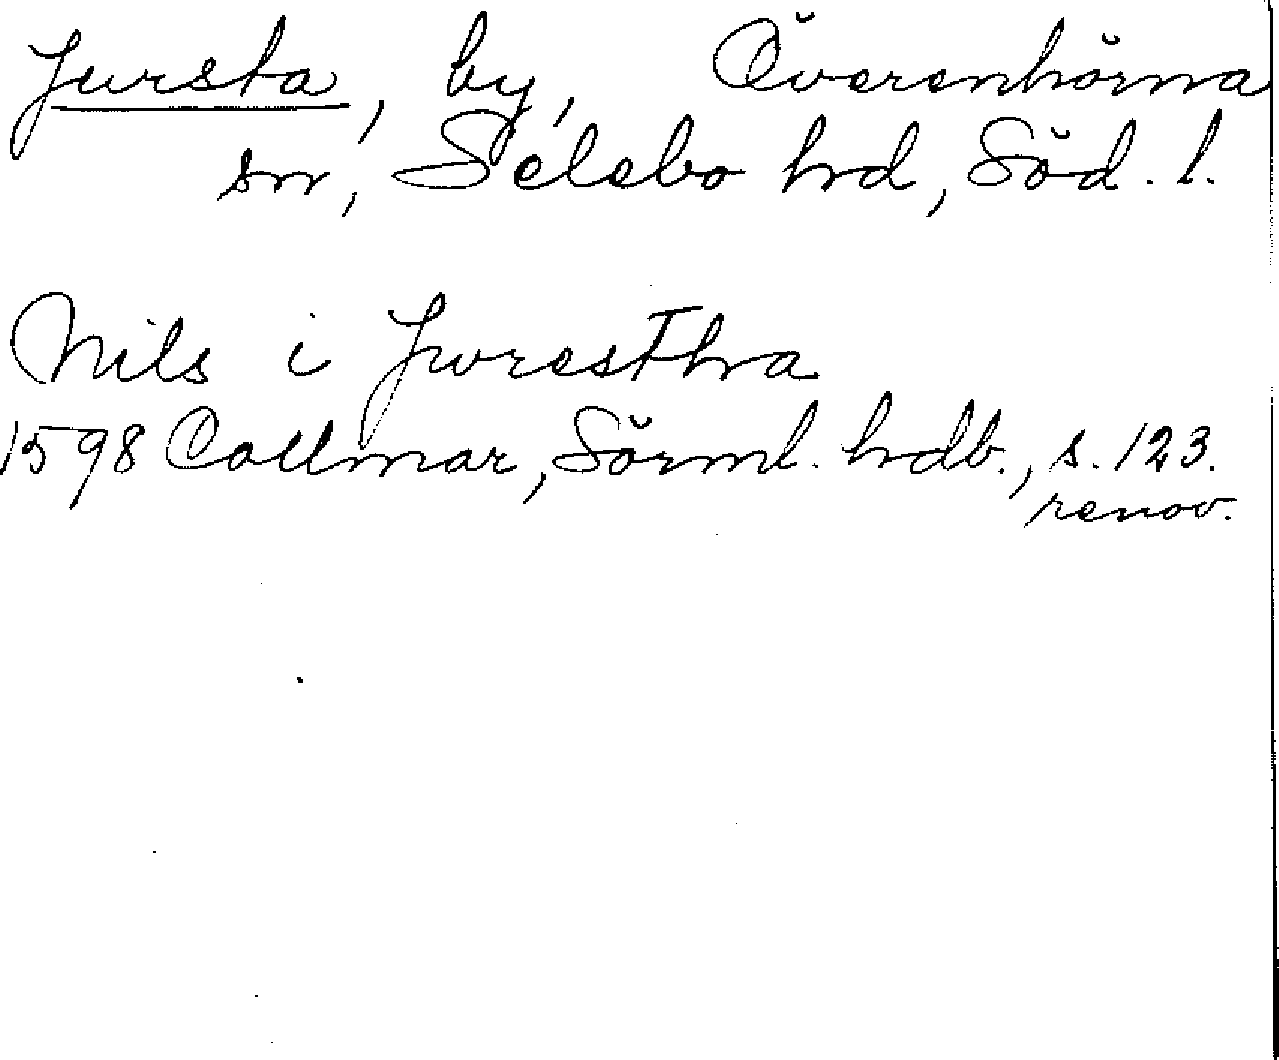 Jursta, by, Överenhörna
sn, Selebo hrd, Söd. l.
Nils i JwresTha
1598 Collmar, Sörml. hdb., s. 123.
renov.